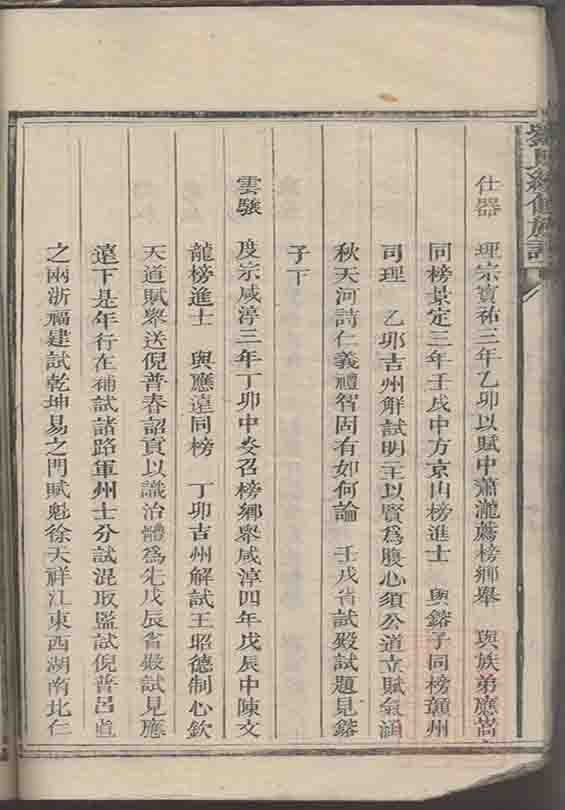 氏續修族譜
仕器　理宗寳祐三年乙卯以賦中蕭瀧薦榜鄉舉　與族弟應嵩
同榜景定三年壬戌中方京山榜進士　與鎔子同榜贑州
司理　乙卯吉州解試明主以賢爲腹心須公道立賦氣涵
秋天河詩仁義禮智固有如何論　壬戌省試殿試題見鎔
子下
雲駿　度宗咸淳三年丁卯中　召榜鄉舉咸淳四年戊辰中陳文
龍榜進士　與應遠同榜　丁卯吉州解試王昭德制心欽
天道賦舉送倪普春詔頁以識治體爲先戊辰省殿試見應
遠下是年行在補試諸路軍州士分試混取監試倪普呂直
之兩浙福建試乾坤易之門賦魁徐天祥江東西湖南北仁